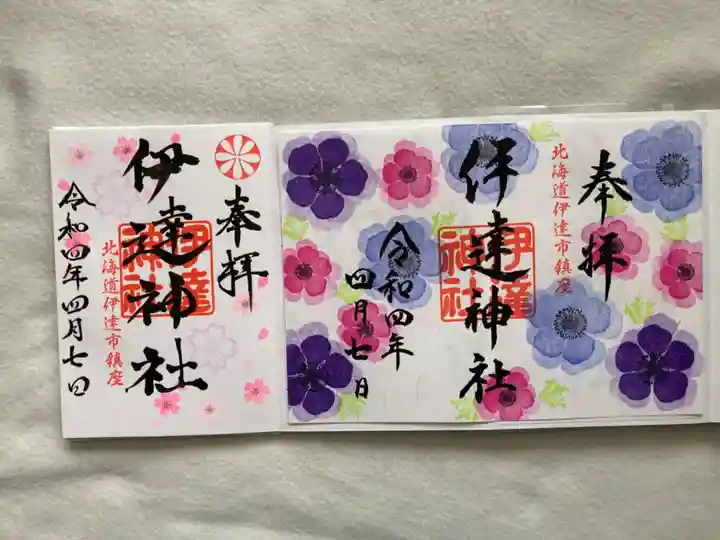 奉拝
北海道伊達市鎮座
伊達神社
伊達神社
令和四年
四月七日
奉拝
伊達神社
伊達神社
北海道伊達市鎮座
令和四年四月七日